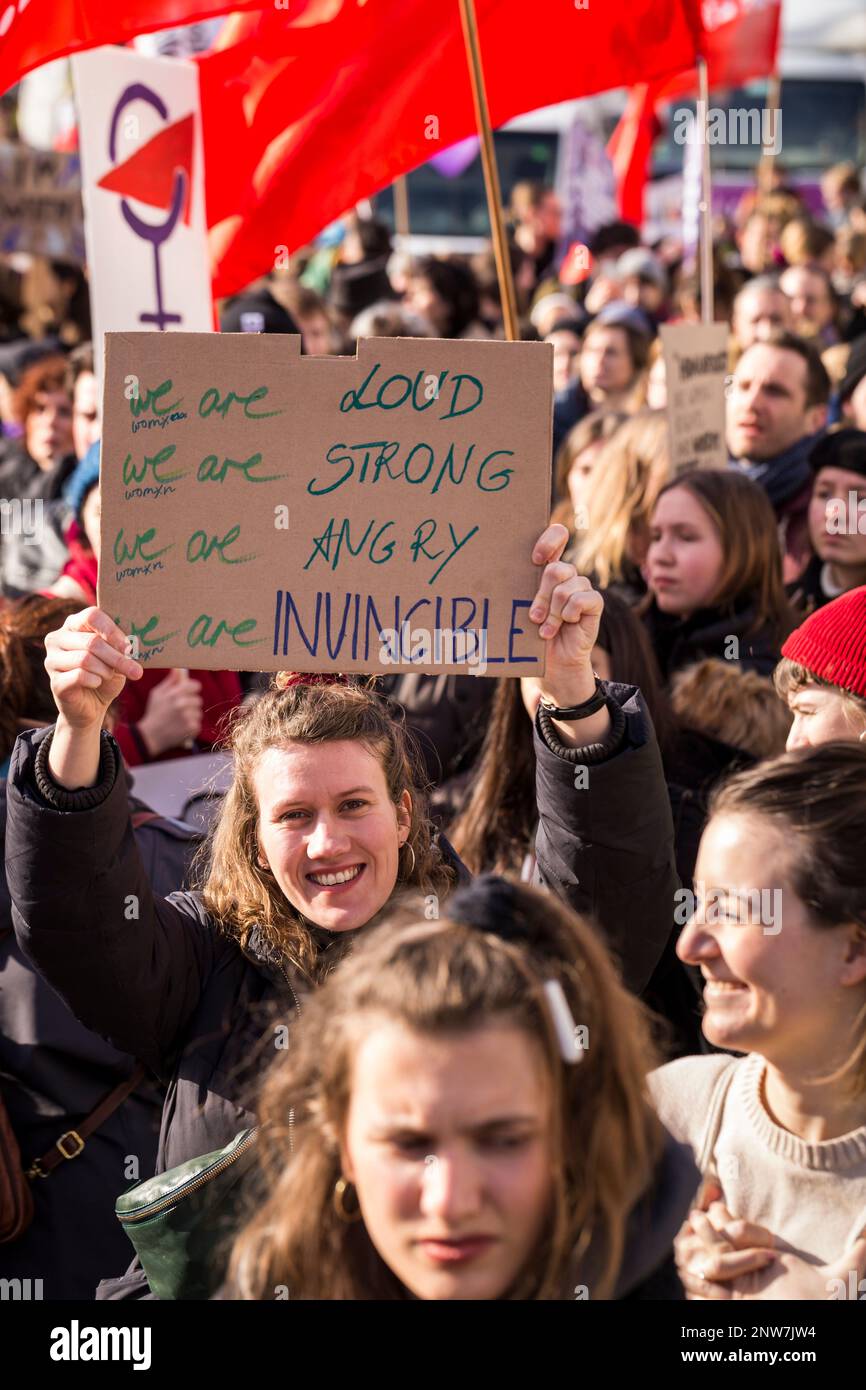 we are LOUD
womxn
we are STRONG
womxn
we are ANGRY
womxn
we are INVINCIBLE
womxn
a
alamy
Image ID: 2NW7JW4
www.alamy.com